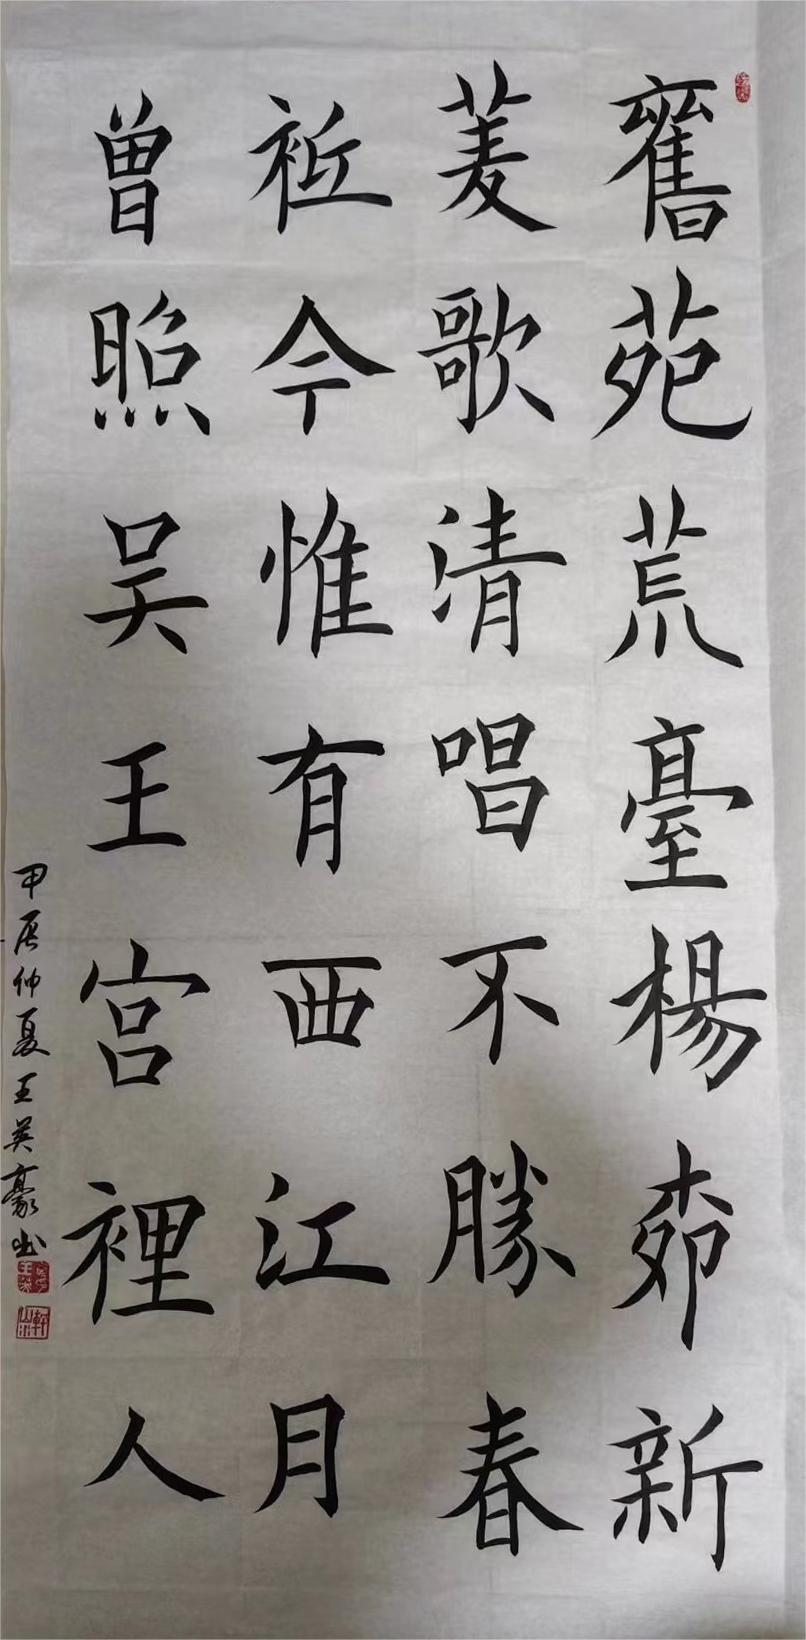 舊苑荒臺楊桺新
菱歌清唱不勝春
祗今惟有西江月
曾照吴王宫裡人
甲辰仲夏王英豪书